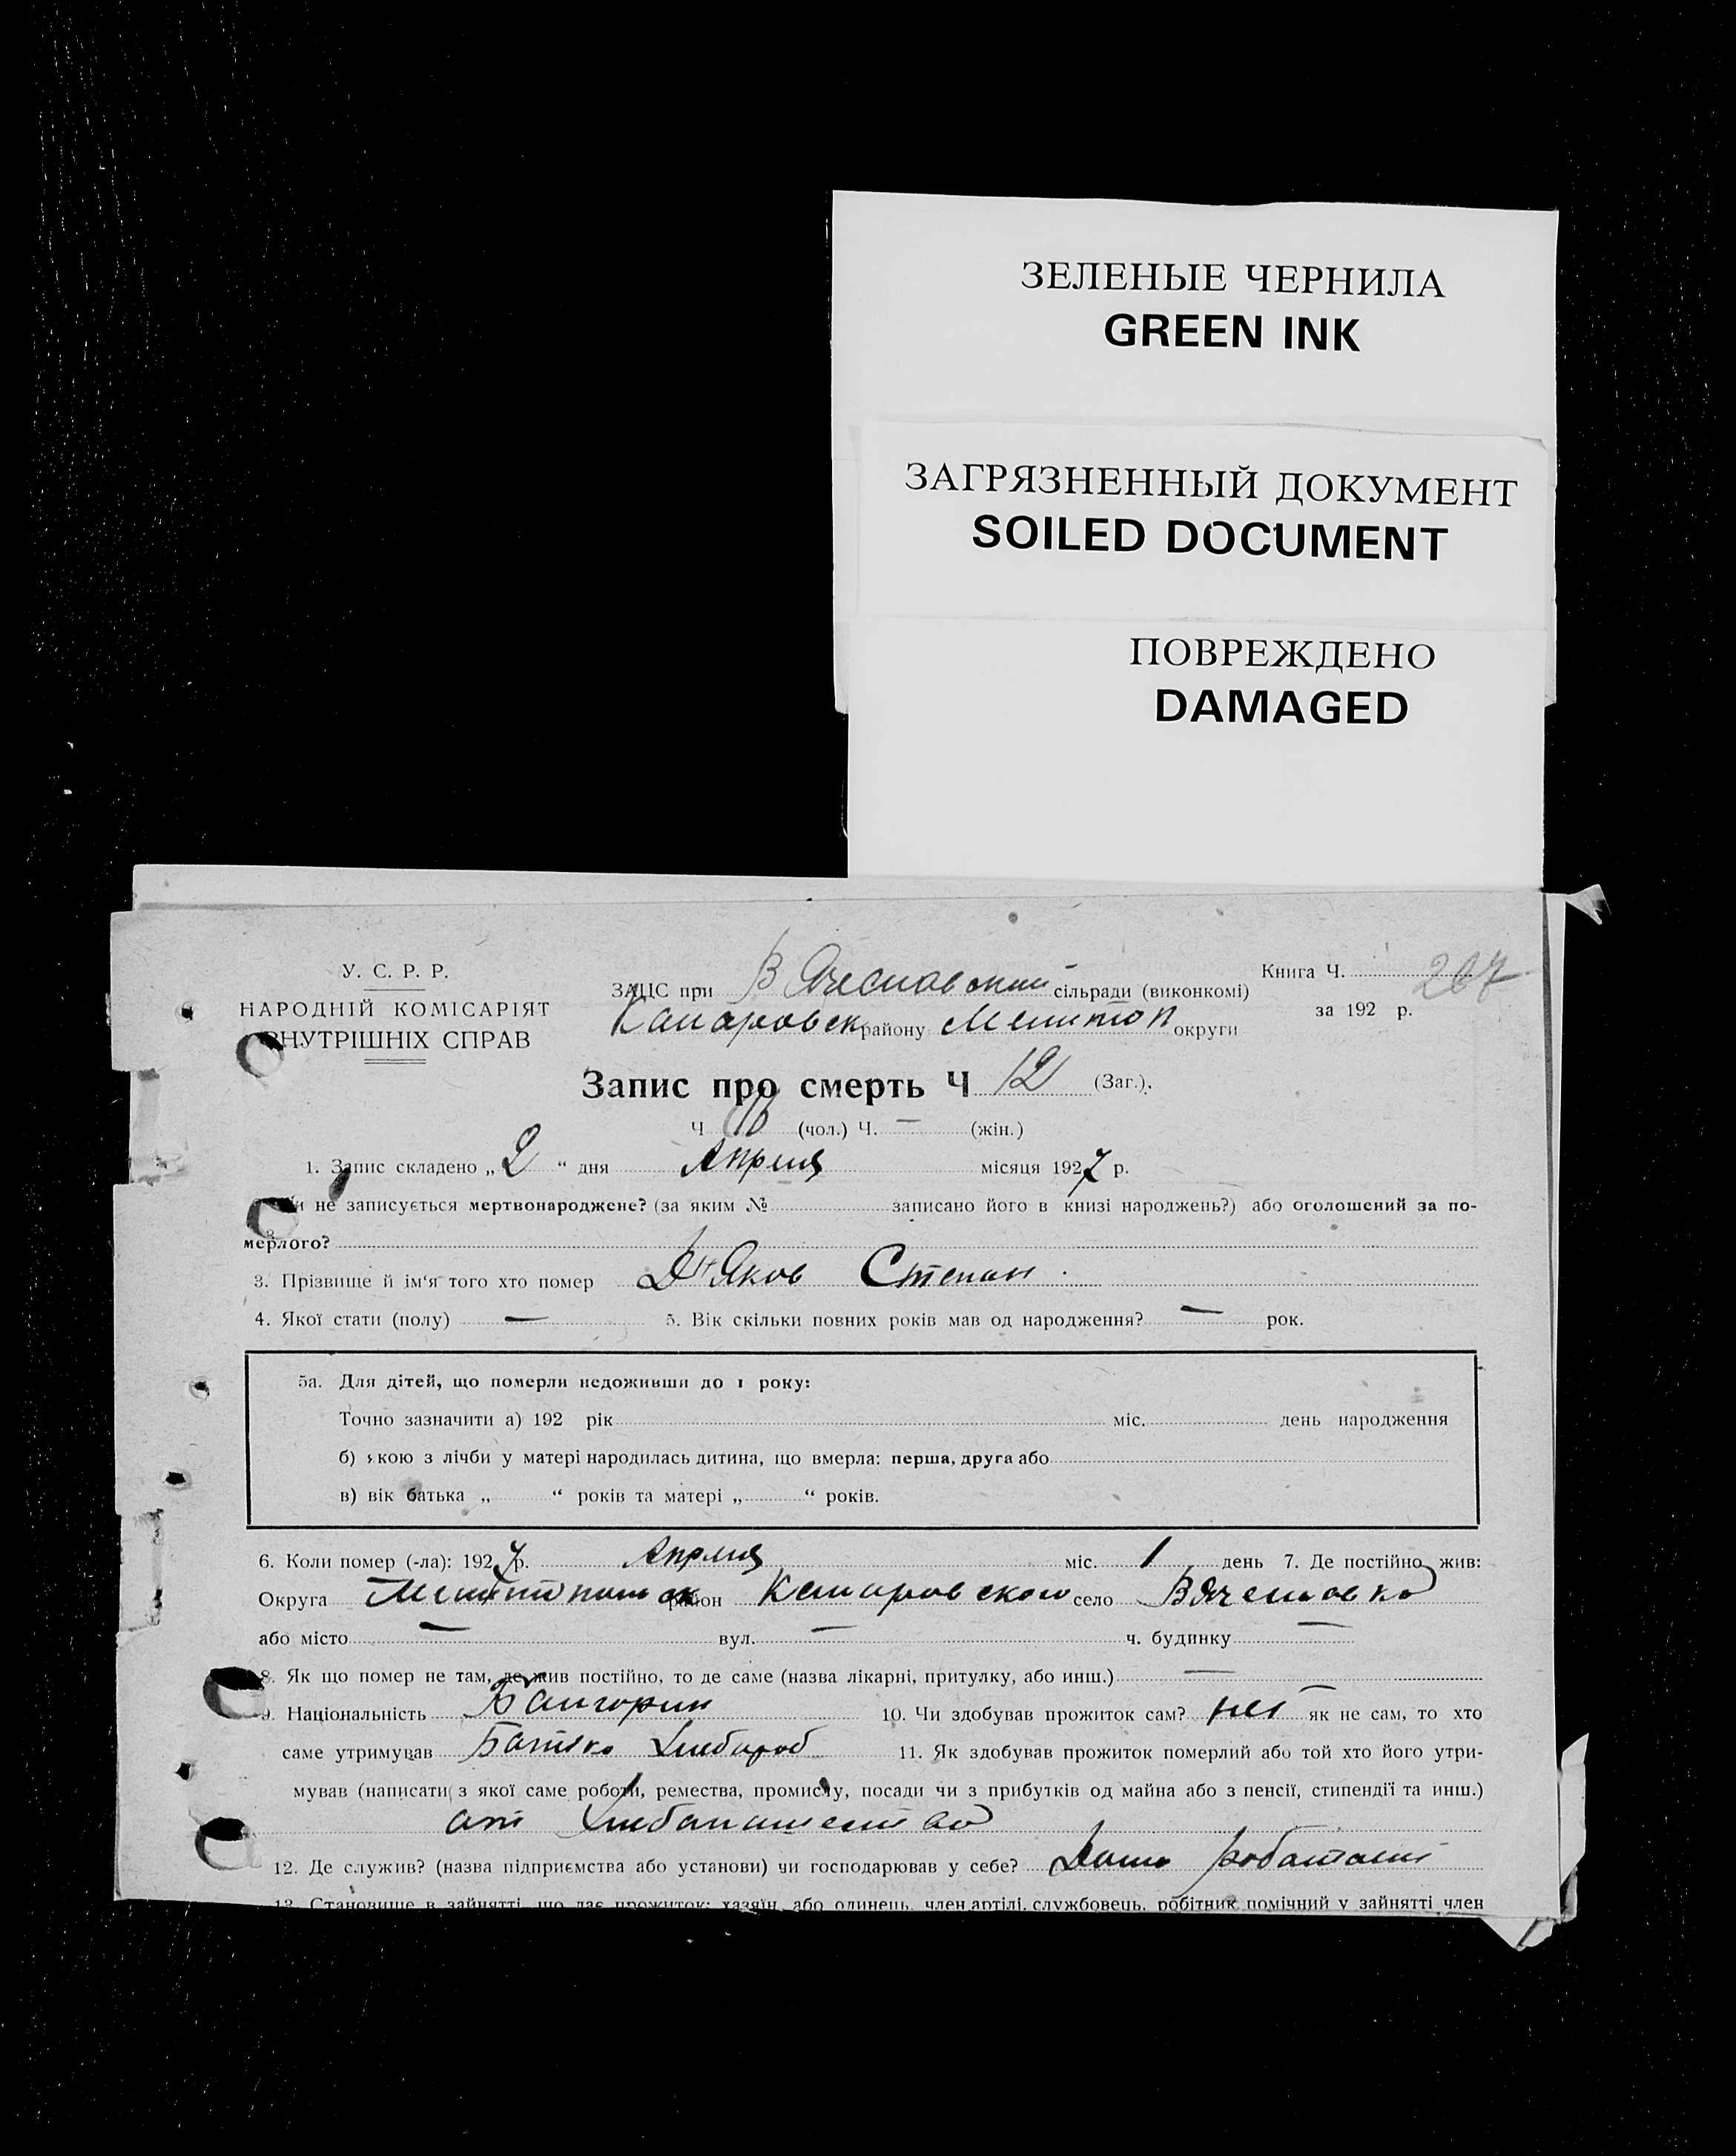 ЗЕЛЕНЫЕ ЧЕРНИЛА
GREEN INK
ЗАГРЯЗНЕННЫЙ ДОКУМЕНТ
SOILED DOCUMENT
ПОВРЕЖДЕНО
DAMAGED
У. С. Р. Р.
НАРОДНІЙ КОМІСАРІЯТ
ВНУТРІШНІХ СПРАВ
ЗАЦС при сільради (виконкомі)
району округи
Книга Ч. 267
за 192 р.
Запис про смерть Ч 12 (Заг.).
Ч (чол.) Ч. — (жін.)
1. Запис складено „ 2 “ дня Апреля місяця 1927 р.
не записується мертвонароджене? (за яким № записано його в книзі народжень?) або оголошений за по-
мерлого?
3. Прізвище й ім‘я того хто помер Степан
4. Якої стати (полу) — 5. Вік скільки повних років мав од народження? — рок.
5а. Для дітей, що померли недоживши до 1 року:
Точно зазначити а) 192 рік міс. день народження
б) якою з лічби у матері народилась дитина, що вмерла: перша, друга або
в) вік батька „ “ років та матері „ “ років.
6. Коли помер (-ла): 1927 р. Апреля міс. 1 день 7. Де постійно жив:
Округа район село
або місто — вул. — ч. будинку —
8. Як що помер не там, де жив постійно, то де саме (назва лікарні, притулку, або инш.) —
9. Національність 10. Чи здобував прожиток сам? нет як не сам, то хто
саме утримував Батько 11. Як здобував прожиток померлий або той хто його утри-
мував (написати з якої саме роботи, ремества, промислу, посади чи з прибутків од майна або з пенсії, стипендії та инш.)
от Хлебопашество
12. Де служив? (назва підприємства або установи) чи господарював у себе?
13. Становище в зайнятті, що дає прожиток: хазяїн, або одинець, член артілі, службовець, робітник помічний у зайнятті член